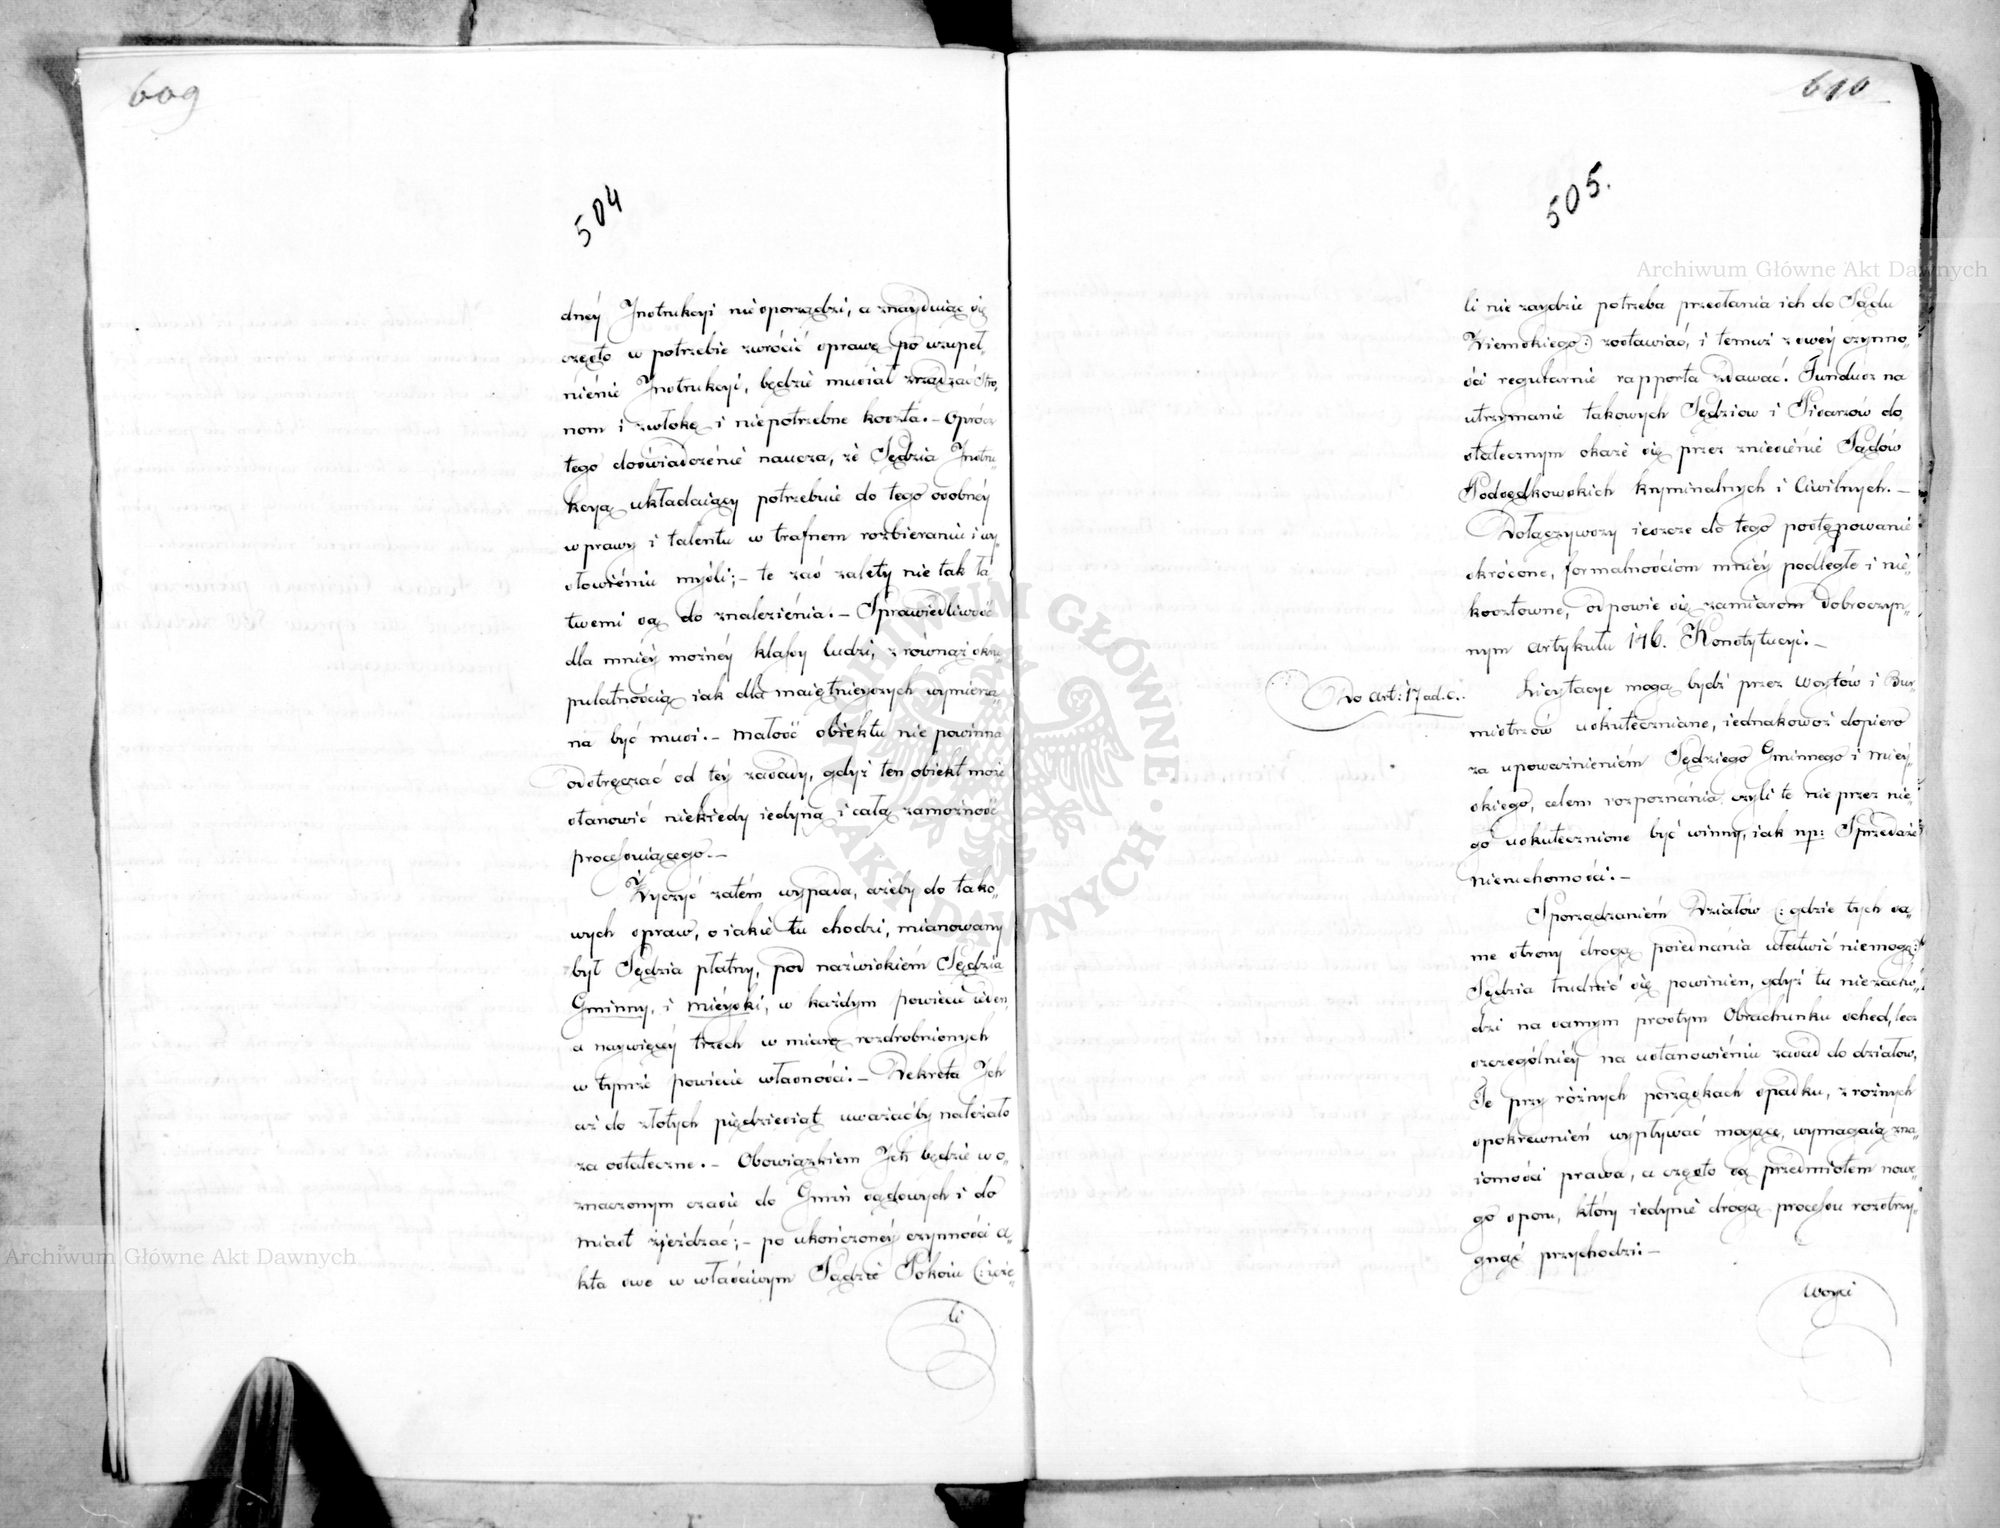 609
504
dnéy Instrukcyi niesporządzi, a znayduiąc się
często w potrzebie zwrócić sprawę po uzupeł„
niénie Instrukcyi, będzie musiał zrządzać Stro„
nom i zwłokę i niepotrzebne koszta. – Oprócz
tego doświadczénie naucza, że Sędzia Instru„
kcyą układaiący potrzebuie do tego osobnéy
wprawy i talentu w trafnem rozbieraniu i wy„
słowiéniu myśli; – te zaś zalety nie tak ła„
twemi są do znalezienia. – Sprawiedliwość
dla mniéy możnéy klassy ludzi, z równąż skru„
pulatnością iak dla maiętnieyszych wymierza„
na być musi. – Małość obiektu nie powinna
odstręczać od téy zasady, gdyż ten obiekt może
stanowić niekiedy iedyną i całą zamożność
processuiącego. –
Życzyć zatém wypada, ażeby do tako„
wych spraw, o iakie tu chodzi, mianowany
był Sędzia płatny, pod nazwiskiem Sędzia
Gminny, i mieyski, w każdym powiecie ieden,
a naywięcéy trzech w miarę rozdrobnionych
w tymże powiecie własności. – Dekreta Ich
aż do złotych piędziesiąt uważaćby należało
za ostateczne. – Obowiązkiem Ich będzie w o„
znaczonym czasie do Gmin sądowych i do
miast zjeżdzać; – po ukończonéy czynności a„
kta swe w właściwym Sądzie Pokoiu (: ieże„
li
610
505.
li nie zaydzie potrzeba przesłania ich do Sądu
Ziemskiego:) zostawiać, i temuż z swéy czynno„
ści regularnie rapporta zdawać. Fundusz na
utrzymanie takowych Sędziow i Pisarzów do„
statecznym okaże się przez zniesiénie Sądów
Podsędkowskich kryminalnych i Civilnych. –
Dołączywszy ieszcze do tego postępowanie
skrócone, formalnościom mniéy podległe i nie„
kosztowne, odpowie się zamiarom dobroczyn„
nym artykułu 146. Konstytucyi. –
Do Art: 17 ad. C.
Licytacye mogą bydź przez Woytów i Bur„
mistrzów uskuteczniane, iednakowoż dopiero
za upoważnieniem Sędziego Gminnego i miey„
skiego, celem rozpoznania, czyli te nie przez nie„
go uskutecznione być winny, iak np: Sprzedaże
nieruchomości. –
Sporządzaniém Działów (: gdzie tych sa„
me strony drogą poiednania ułatwić niemogą:)
Sędzia trudnić się powinien, gdyż tu niezacho„
dzi na samym prostym Obrachunku sched, lecz
szczególniéy na ustanowiéniu zasad do działow.
Te przy różnych porządkach spadku, z rożnych
spokrewnień wypływać mogące, wymagaią zna„
iomości prawa, a często są przedmiotem nowe„
go sporu, który iedynie drogą processu rozstrzy„
gnąć przychodzi. –
Woyci
Archiwum Główne Akt Dawnych
Archiwum Główne Akt Dawnych
ARCHIWUM GŁÓWNE AKT DAWNYCH